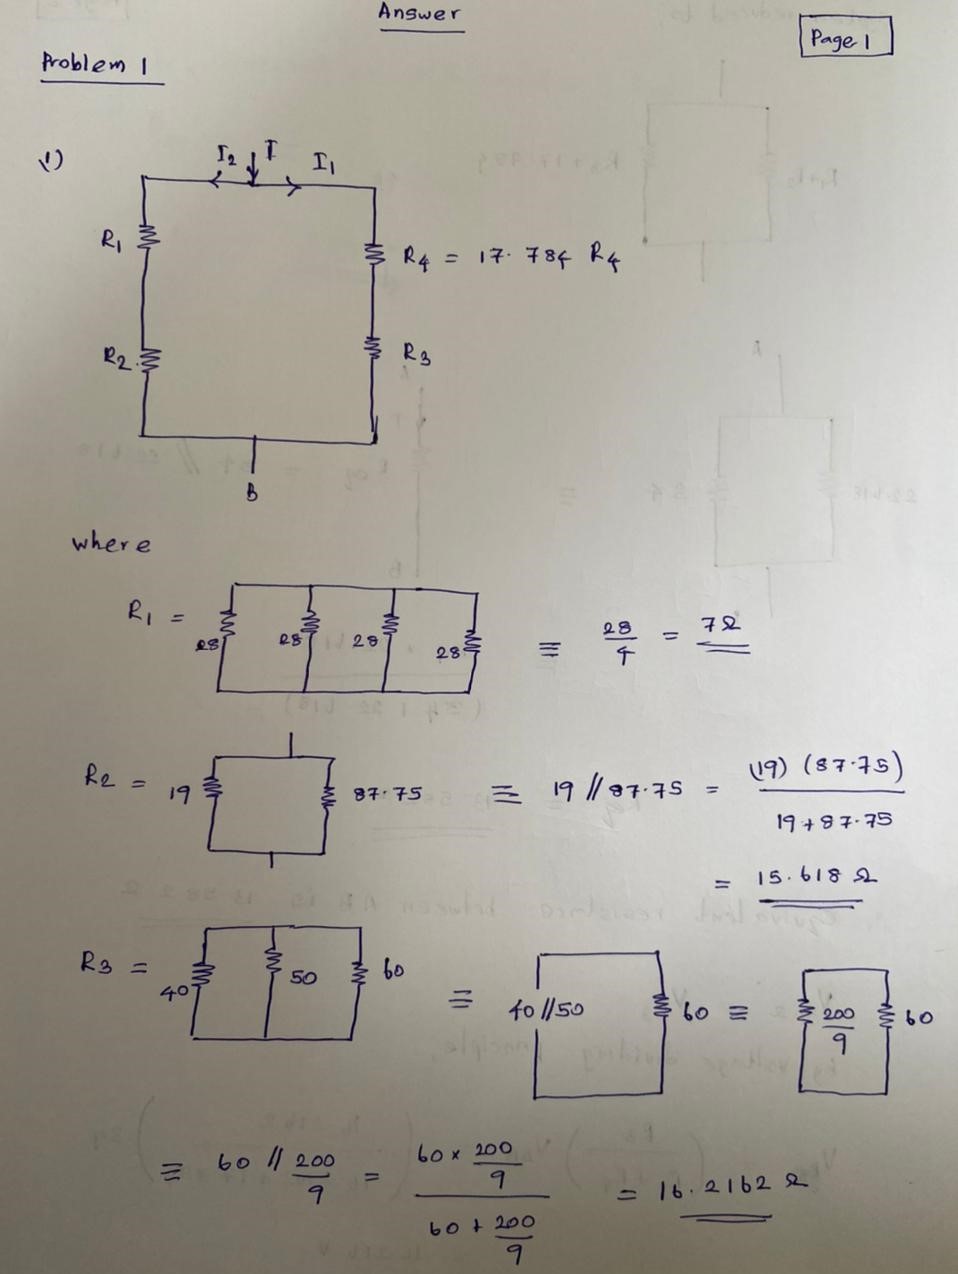 Answer
Page 1
Problem 1
1)
I₂ I I₁
R₁
R₄ = 17.784 R₄
R₂
R₃
B
where
R₁ = 28 28 28 28 ≡ 28/4 = 7Ω
R₂ = 19 87.75 ≡ 19 // 87.75 = (19) (87.75) / 19 + 87.75
= 15.618 Ω
R₃ = 40 50 60 ≡ 40//50 60 ≡ 200/9 60
≡ 60 // 200/9 = 60 × 200/9 / 60 + 200/9 = 16.2162 Ω